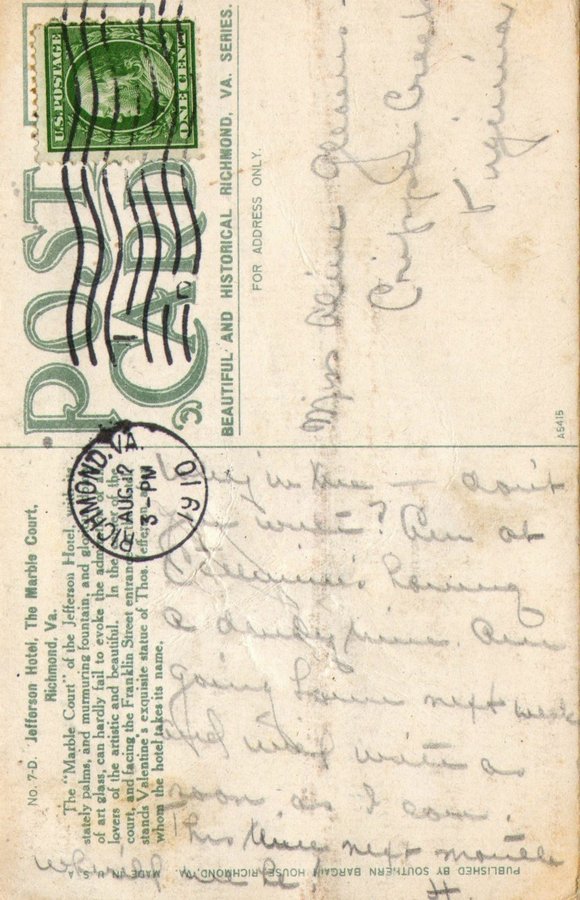 U.S. POSTAGE
ONE CENT
POST CARD
BEAUTIFUL AND HISTORICAL RICHMOND, VA. SERIES.
FOR ADDRESS ONLY.
RICHMOND, VA.
AUG 12
3 PM
1910
Miss
Cripple Creek
Virginia
A5415
No. 7-D. Jefferson Hotel, The Marble Court,
Richmond, Va.
The "Marble Court" of the Jefferson Hotel,
stately palms, and murmuring fountain, and
of art glass, can hardly fail to evoke the
lovers of the artistic and beautiful. In the
court, and facing the Franklin Street entrance
stands Valentine's exquisite statue of Thos. Jefferson
whom the hotel takes its name.
don't
write? Am at
having
a time. Am
going home next week
and will write as
soon as I can.
This time next month
where will we be!
H.
PUBLISHED BY SOUTHERN BARGAIN HOUSE, RICHMOND, VA. MADE IN U.S.A.